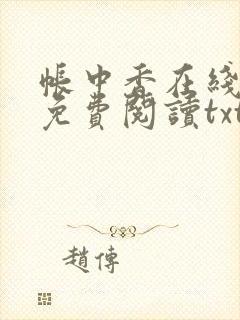 帳中香在綫
免費閱讀txt
趙傳